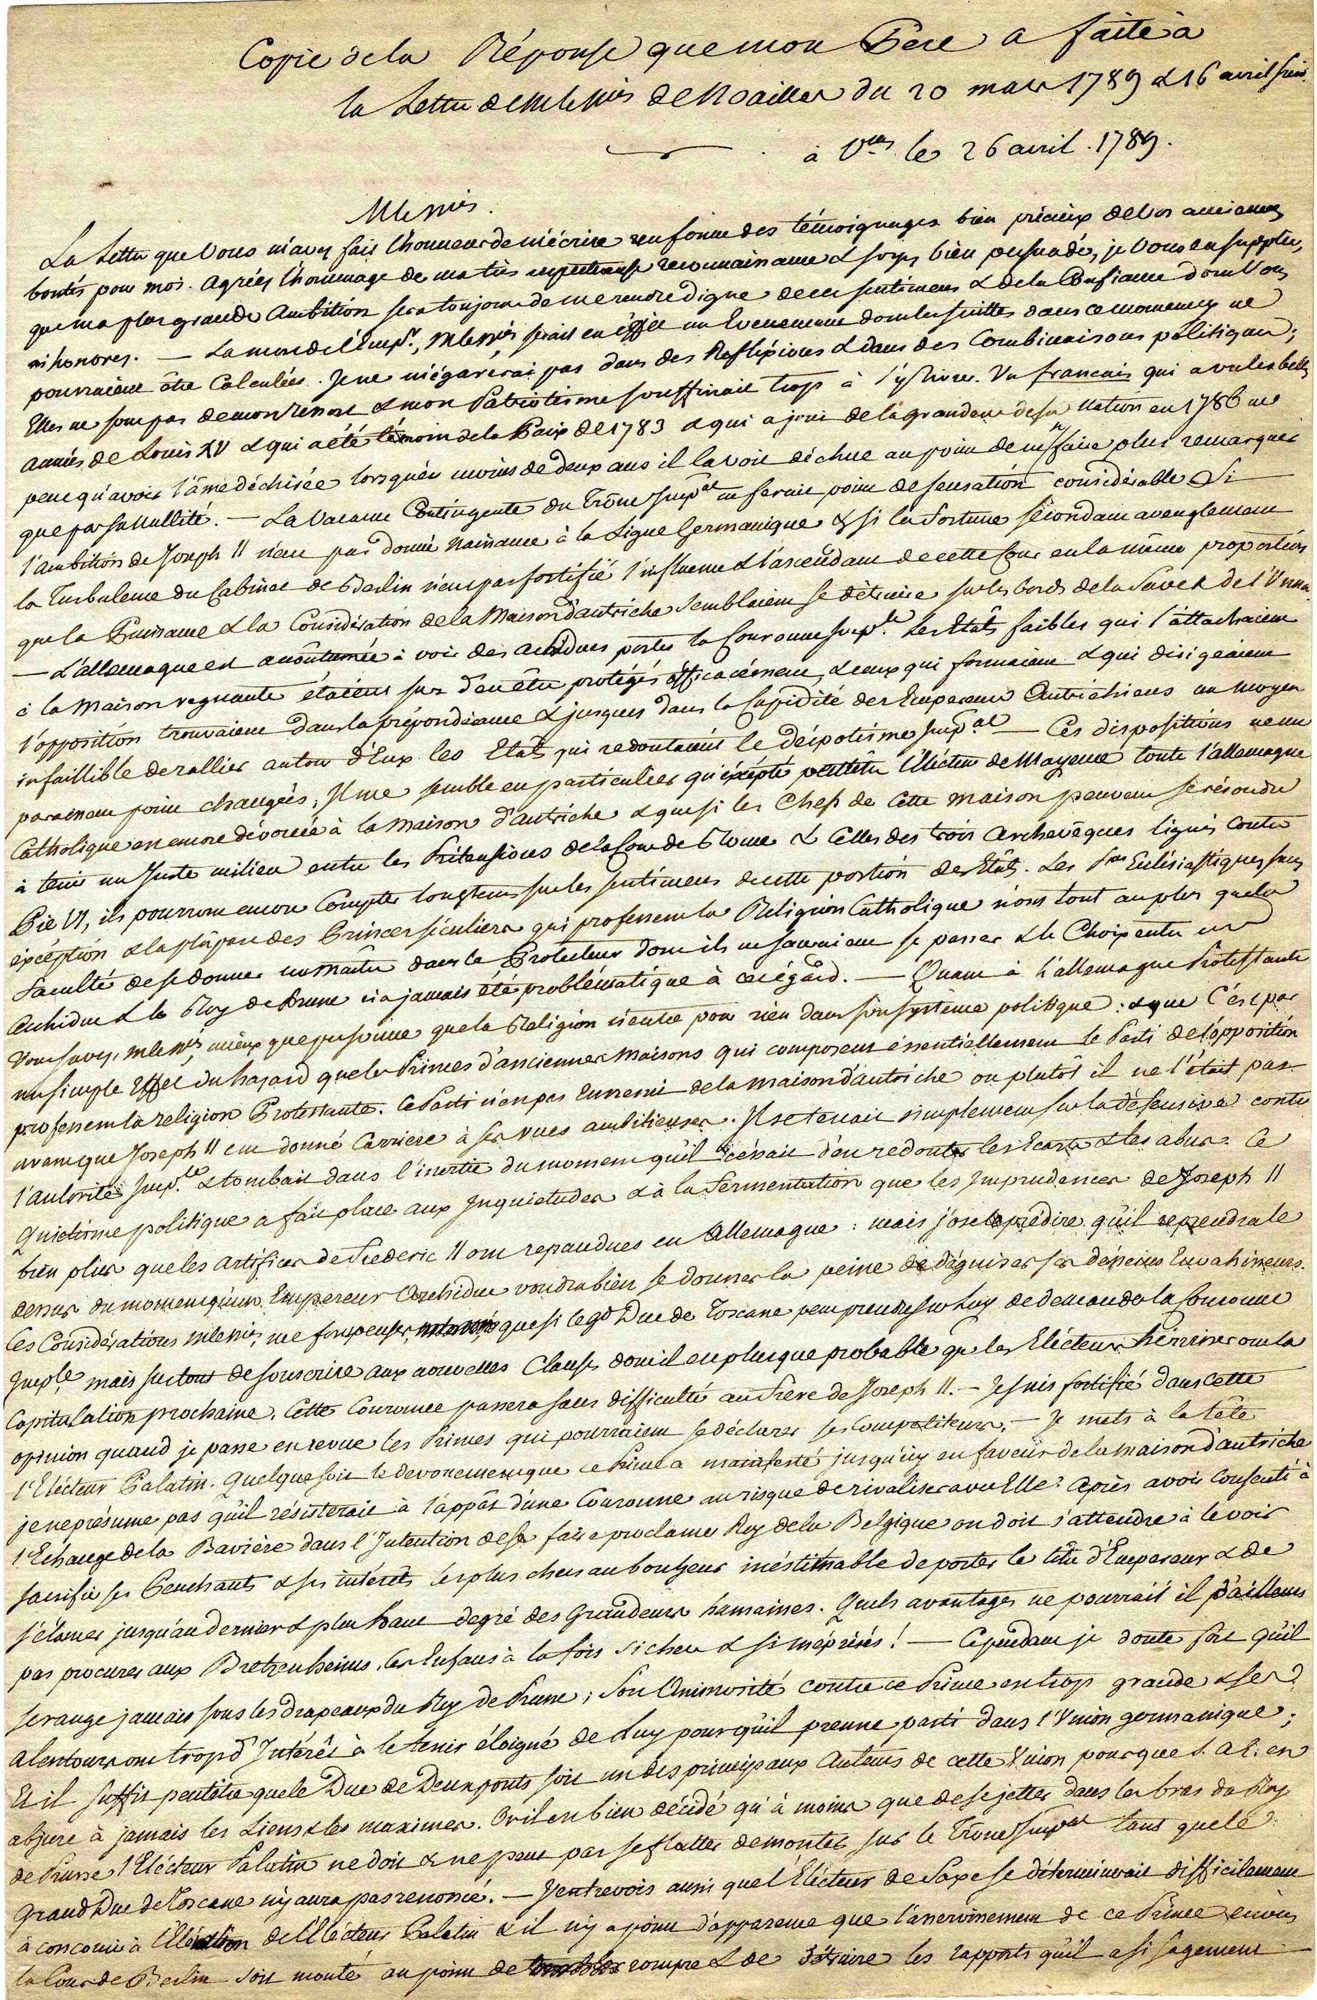 Copie de la Réponse que mon Père a faite à
la Lettre de Mr le Mis de Noailles du 20 mars 1789 & 16 avril suiv.
à Vlles le 26 avril. 1789.
Mr le Mis.
La Lettre que Vous m'avez fait l'honneur de m'écrire renferme des témoignages bien précieux de Vos anciennes
bontés pour moi. Agréés l'hommage de ma très respectueuse reconnaissance & soyés bien persuadé, je Vous en supplie,
que ma plus grande Ambition sera toujours de me rendre digne de ces sentimens & de la Confiance dont Vous
m'honorés. — La mort de l'Emp.r, Mr le Mis, serait en effet un Evenement dont les suittes dans ce moment cy ne
pourraient être Calculées. Je ne m'égarerai pas dans des Refléxions & dans des Combinaisons politiques;
Elles ne sont pas de mon ressort & mon Patriotisme souffrirait trop à s'y livrer. Un français qui a vu les belles
années de Louis XV & qui a été témoin de la Paix de 1783 & qui a joui de la grandeur de sa Nation en 1786 ne
peut qu'avoir l'âme déchirée lorsqu'en moins de deux ans il la voit déchue au point de ne se faire plus remarquer
que par sa nullité. — La Vacance Contingente du Trône Imp.al ne ferait point de sensation considérable Si
l'ambition de Joseph II n'eut pas donné Naissance à la Ligue Germanique & si la Fortune secondant aveuglement
la Turbulence du Cabinet de Berlin n'eut pas fortifié l'influence & l'ascendant de cette Cour en la même proportion
que la Puissance & la Considération de la Maison d'autriche semblaient se détruire sur les bords de la Save & de l'Unna.
— L'allemagne est accoutumée à voir des archiducs porter la Couronne Imp.le Les Etats faibles qui s'attachaient
à la Maison regnante étaient sûrs d'en être protégés efficacément, & ceux qui formaient & qui dirigeaient
l'opposition trouvaient dans la prépondérance & jusques dans la Cupidité des Empereurs Autrichiens un moyen
infaillible de rallier autour d'Eux les Etats qui redoutaient le despotisme Imp.al — Ces dispositions ne me
paraissent point changées; Il me semble en particulier qu'éxcepté peutêtre l'Electeur de Mayence toute l'allemagne
Catholique est encore dévouée à la Maison d'autriche & que si les Chefs de Cette maison peuvent se résoudre
à tenir un Juste milieu entre les Prétensions de la Cour de Rome & Celles des trois Archevêques ligués contre
Pie VI, ils pourront encore Compter longtems sur les sentimens de cette portion des Etats. Les Pces Ecclésiastiques sans
exception & la plûpart des Princes séculiers qui professent la Religion Catholique n'ont tout au plus que la
faculté de se donner un Maître dans le Protecteur dont ils ne sauraient se passer & le Choix entre un
Archiduc & le Roy de Prusse n'a jamais été problématique à cet égard. — Quant à l'allemagne Protestante
Vous savez, Mr le Mis, mieux que personne que la Religion n'entre pour rien dans son système politique: & que C'est par
un simple Effet du hazard que les Princes d'anciennes Maisons qui composent éssentiellement le Parti de l'opposition
professent la religion Protestante. Ce Parti n'est pas Ennemi de la maison d'autriche ou plutôt il ne l'était pas
avant que Joseph II eut donné Carriere à ses vues ambitieuses. Il se tenait simplement sur la défensive contre
l'autorité Imp.le & tombait dans l'inertie du moment qu'il cessait d'en redouter les Ecarts & les abus. Ce
Quiétisme politique a fait place aux Inquietudes & à la Fermentation que les Imprudences de Joseph II
bien plus que les artifices de Frederic II ont repandues en Allemagne: mais j'ose le prédire qu'il reprendra le
dessus du moment qu'un Empereur Archiduc voudra bien se donner la peine de déguiser ses desseins Envahisseurs.
Ces Considérations, Mr le Mis, me font penser que si le gd Duc de Toscane peut prendre sur Luy de demander la Couronne
Imp.le, mais surtout de souscrire aux nouvelles Clauses dont il est plus que probable que les Electeurs hérisseront la
Capitulation prochaine, Cette Couronne passera sans difficulté au Frere de Joseph II. — Je suis fortifié dans cette
opinion quand je passe en revue les Princes qui pourraient se déclarer ses Compétiteurs. — Je mets à la tête
l'Electeur Palatin. Quelque soit le devouement que ce Prince a manifesté jusqu'icy en faveur de la maison d'autriche
je ne présume pas qu'il résisterait à l'appât d'une Couronne au risque de rivaliser avec Elle: après avoir consenti à
l'Echange de la Baviére dans l'Intention de se faire proclamer Roy de la Belgique on doit s'attendre à le voir
sacrifier ses Penchants & ses intérêts les plus chers au bonheur inéstimable de porter le titre d'Empereur & de
s'élancer jusqu'au dernier & plus haut degré des Grandeurs humaines. Quels avantages ne pourrait il d'ailleurs
pas procurer aux Bretzenheims, ces Enfans à la fois si chers & si méprisés! — Cependant je doute fort qu'il
se range jamais sous les drapeaux du Roy de Prusse; Son Animosité contre ce Prince est trop grande & ses
alentours ont trop d'Intérêt à le tenir éloigné de Luy pour qu'il prenne parti dans l'Union germanique;
Et il suffit peutêtre que le Duc de Deuxponts soit un des principaux Auteurs de cette Union pour que S. A. E. en
abjure à jamais les Liens & les maximes. Or il est bien décidé qu'à moins que de se jetter dans les bras du Roy
de Prusse l'Electeur Palatin ne doit & ne peut pas se flatter de monter sur le Trône Imp.al tant que le
grand Duc de Toscane n'y aura pas renoncé. — J'entrevois aussi que l'Electeur de Saxe se déterminerait difficilement
à concourir à l'Election de l'Electeur Palatin & il n'y a point d'apparence que l'asservissement de ce Prince envers
la Cour de Berlin soit monté au point de rompre & de détruire les rapports qu'il a si sagement